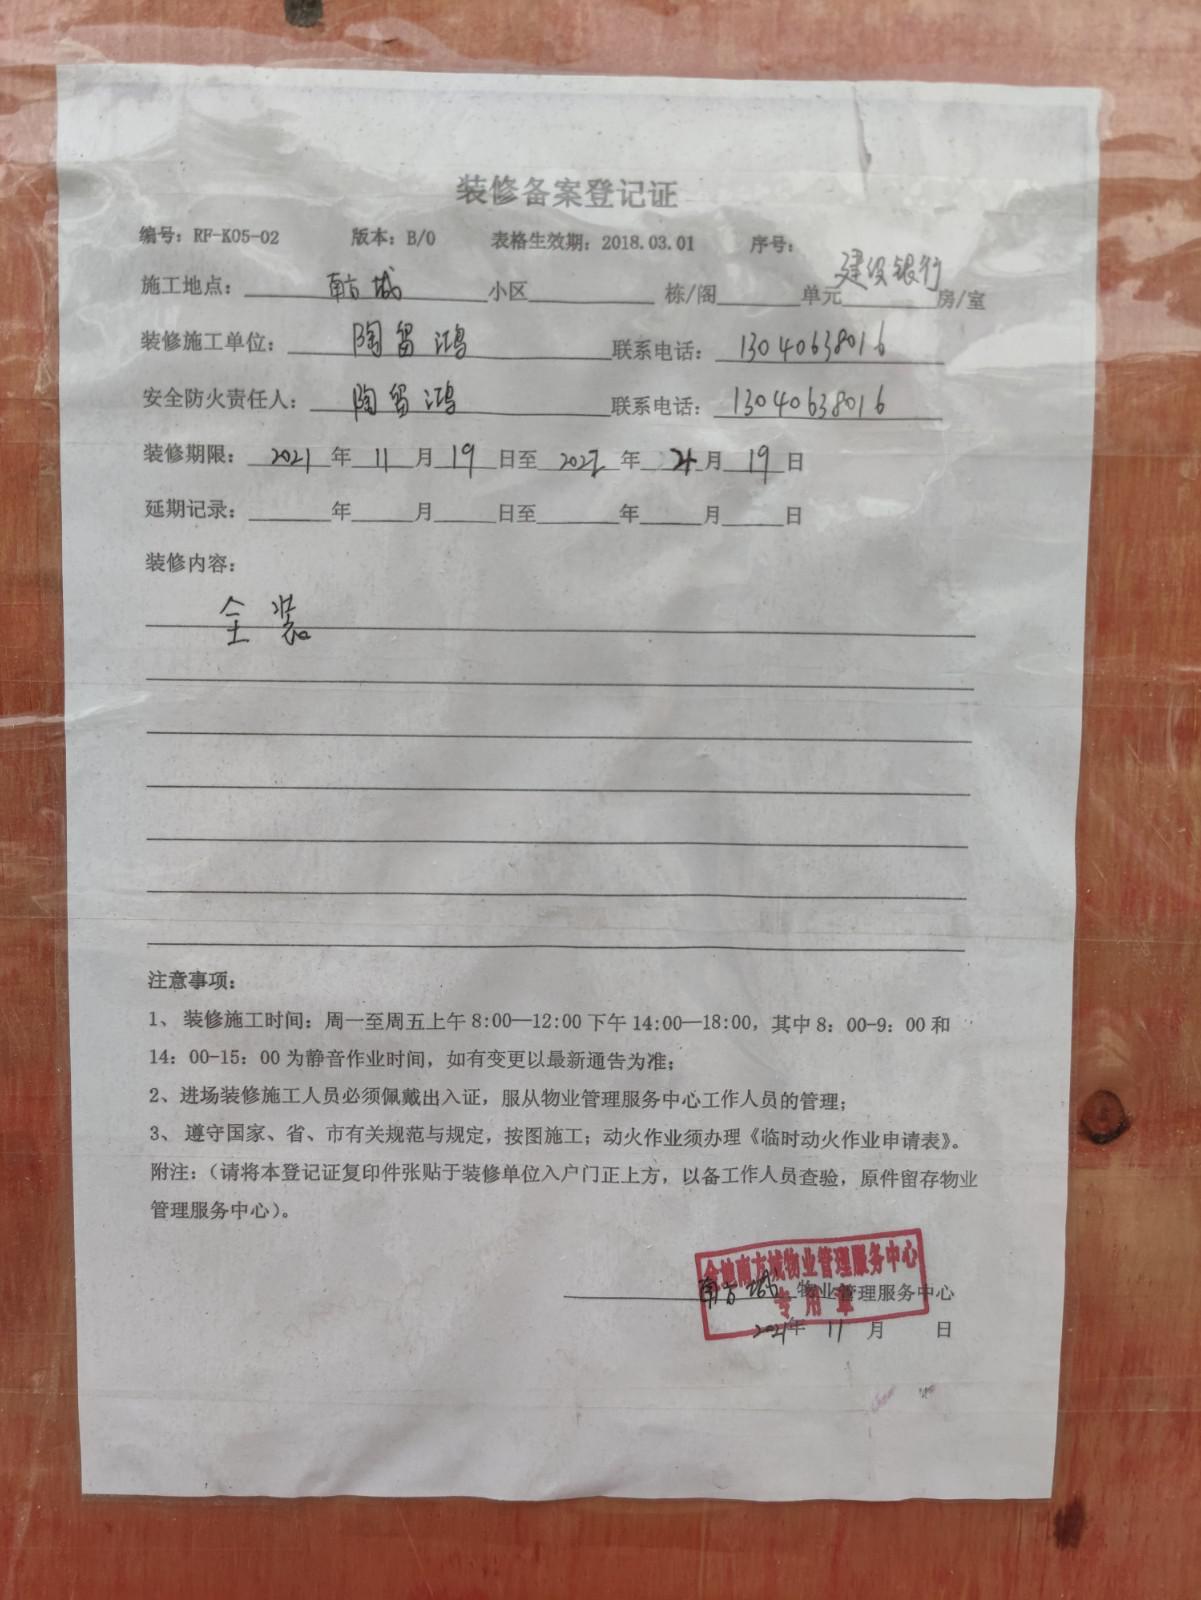 装修备案登记证
编号：RF-K05-02 版本：B/0 表格生效期：2018.03.01 序号：
施工地点：南方城小区 栋/阁 单元建设银行房/室
装修施工单位：陶留鸿 联系电话：13040638016
安全防火责任人：陶留鸿 联系电话：13040638016
装修期限：2021年11月19日至2022年 月19日
延期记录： 年 月 日至 年 月 日
装修内容：
全装
注意事项：
1、装修施工时间：周一至周五上午8:00—12:00下午14:00—18:00，其中8：00-9：00和
14：00-15：00为静音作业时间，如有变更以最新通告为准；
2、进场装修施工人员必须佩戴出入证，服从物业管理服务中心工作人员的管理；
3、遵守国家、省、市有关规范与规定，按图施工；动火作业须办理《临时动火作业申请表》。
附注：（请将本登记证复印件张贴于装修单位入户门正上方，以备工作人员查验，原件留存物业
管理服务中心）。
金地南方城物业管理服务中心
南方城 物业管理服务中心
专用章
2021年 11月 日